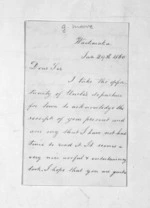 Waikanahe
Jan 29th 1860
Dear Sir
I take the oppor-
tunity of Uncle's departure
for town to acknowledge the
receipt of your present and
am sorry that I have not had
time to read it. It seems a
very nice useful & entertaining
book. I hope that you are quite